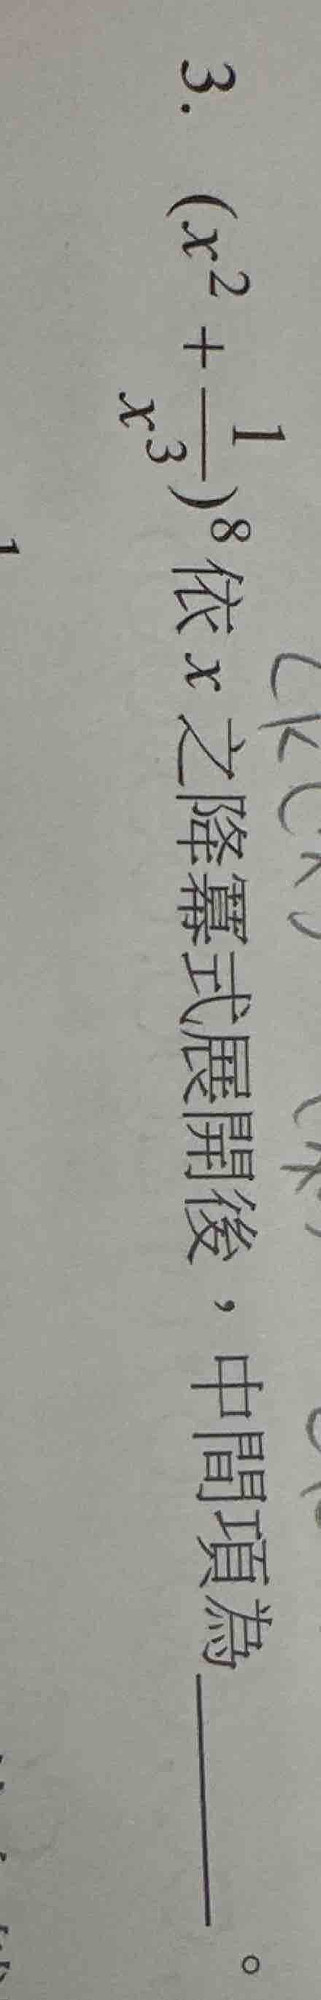 3. (x² + 1/x³)⁸ 依 x 之降冪式展開後，中間項為＿＿＿＿。